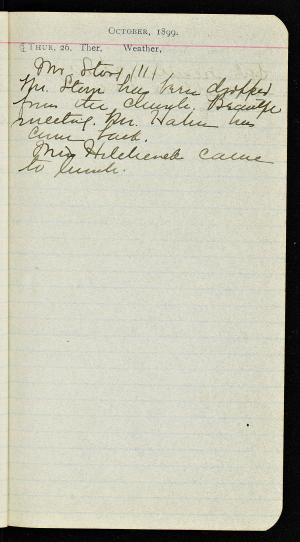 OCTOBER, 1899.
THUR. 26. Ther. Weather,
Mr. Story !!!
Mr. Story has been dropped
from the church. Beautiful
meeting. Mr. Hahn has
come back.
Miss Hitchcock came
to lunch.